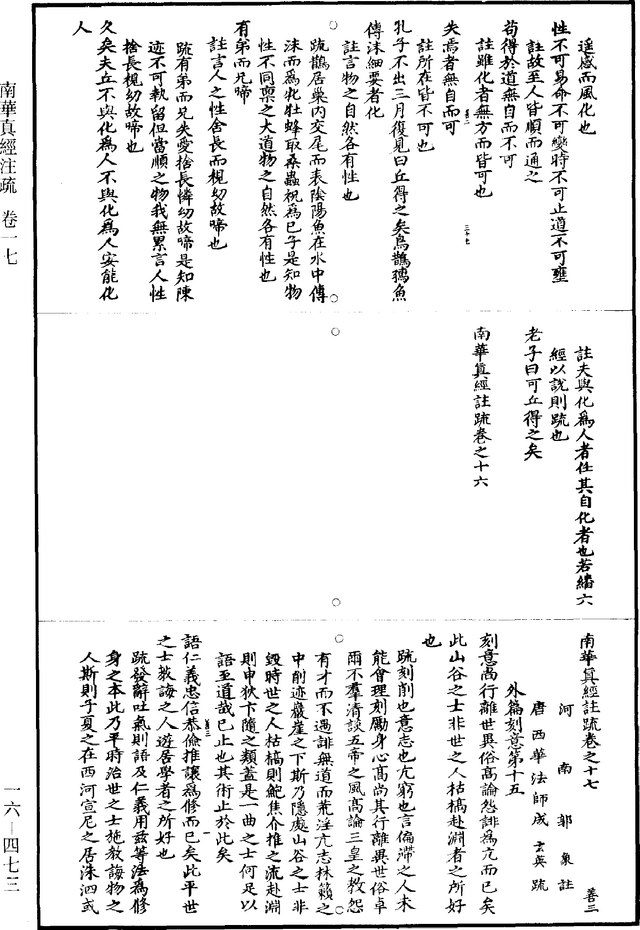 遥感而風化也
性不可易命不可變時不可止道不可壅
註故至人皆順而通之
苟得於道無自而不可
註雖化者無方而皆可也
失焉者無自而可
註所在皆不可也
孔子不出三月復見曰丘得之矣烏鵲孺魚
傳沫細要者化
註言物之自然各有性也
疏鵲居巢內交尾而表陰陽魚在水中傳
沫而為牝牡蜂取桑蟲祝為已子是知物
性不同禀之大道物之自然各有性也
有弟而兄啼
註言人之性舍長而視幼故啼也
疏有弟而兄失愛捨長憐幼故啼是知陳
迹不可執留但當順之物我無累言人性
捨長視幼故啼也
久矣夫丘不與化為人不與化為人安能化
人
註夫與化為人者任其自化者也若繙六
經以說則疏也
老子曰可丘得之矣
南華真經註疏卷之十六
南華真經註疏卷之十七
善三
河南郭象註
唐西華法師成玄英疏
外篇刻意第十五
刻意尚行離世異俗高論怨誹為亢而已矣
此山谷之士非世之人枯槁赴淵者之所好
也
疏刻削也意志也亢窮也言偏滯之人未
能會理刻勵身心高尚其行離異世俗卓
爾不羣清談五帝之風高論三皇之教怨
有才而不遇誹無道而荒淫亢志林籟之
中削迹巖崖之下斯乃隱處山谷之士非
毀時世之人枯槁則鮑焦介推之流赴淵
則申狄卞隨之類蓋是一曲之士何足以
語至道哉已止也其術止於此矣
語仁義忠信恭儉推讓為修而已矣此平世
之士教誨之人遊居學者之所好也
疏發辭吐氣則語及仁義用茲等法為修
身之本此乃平時治世之士施教誨物之
人斯則子夏之在西河宣尼之居洙泗或
南華真經注疏 卷一七
一六—四七三